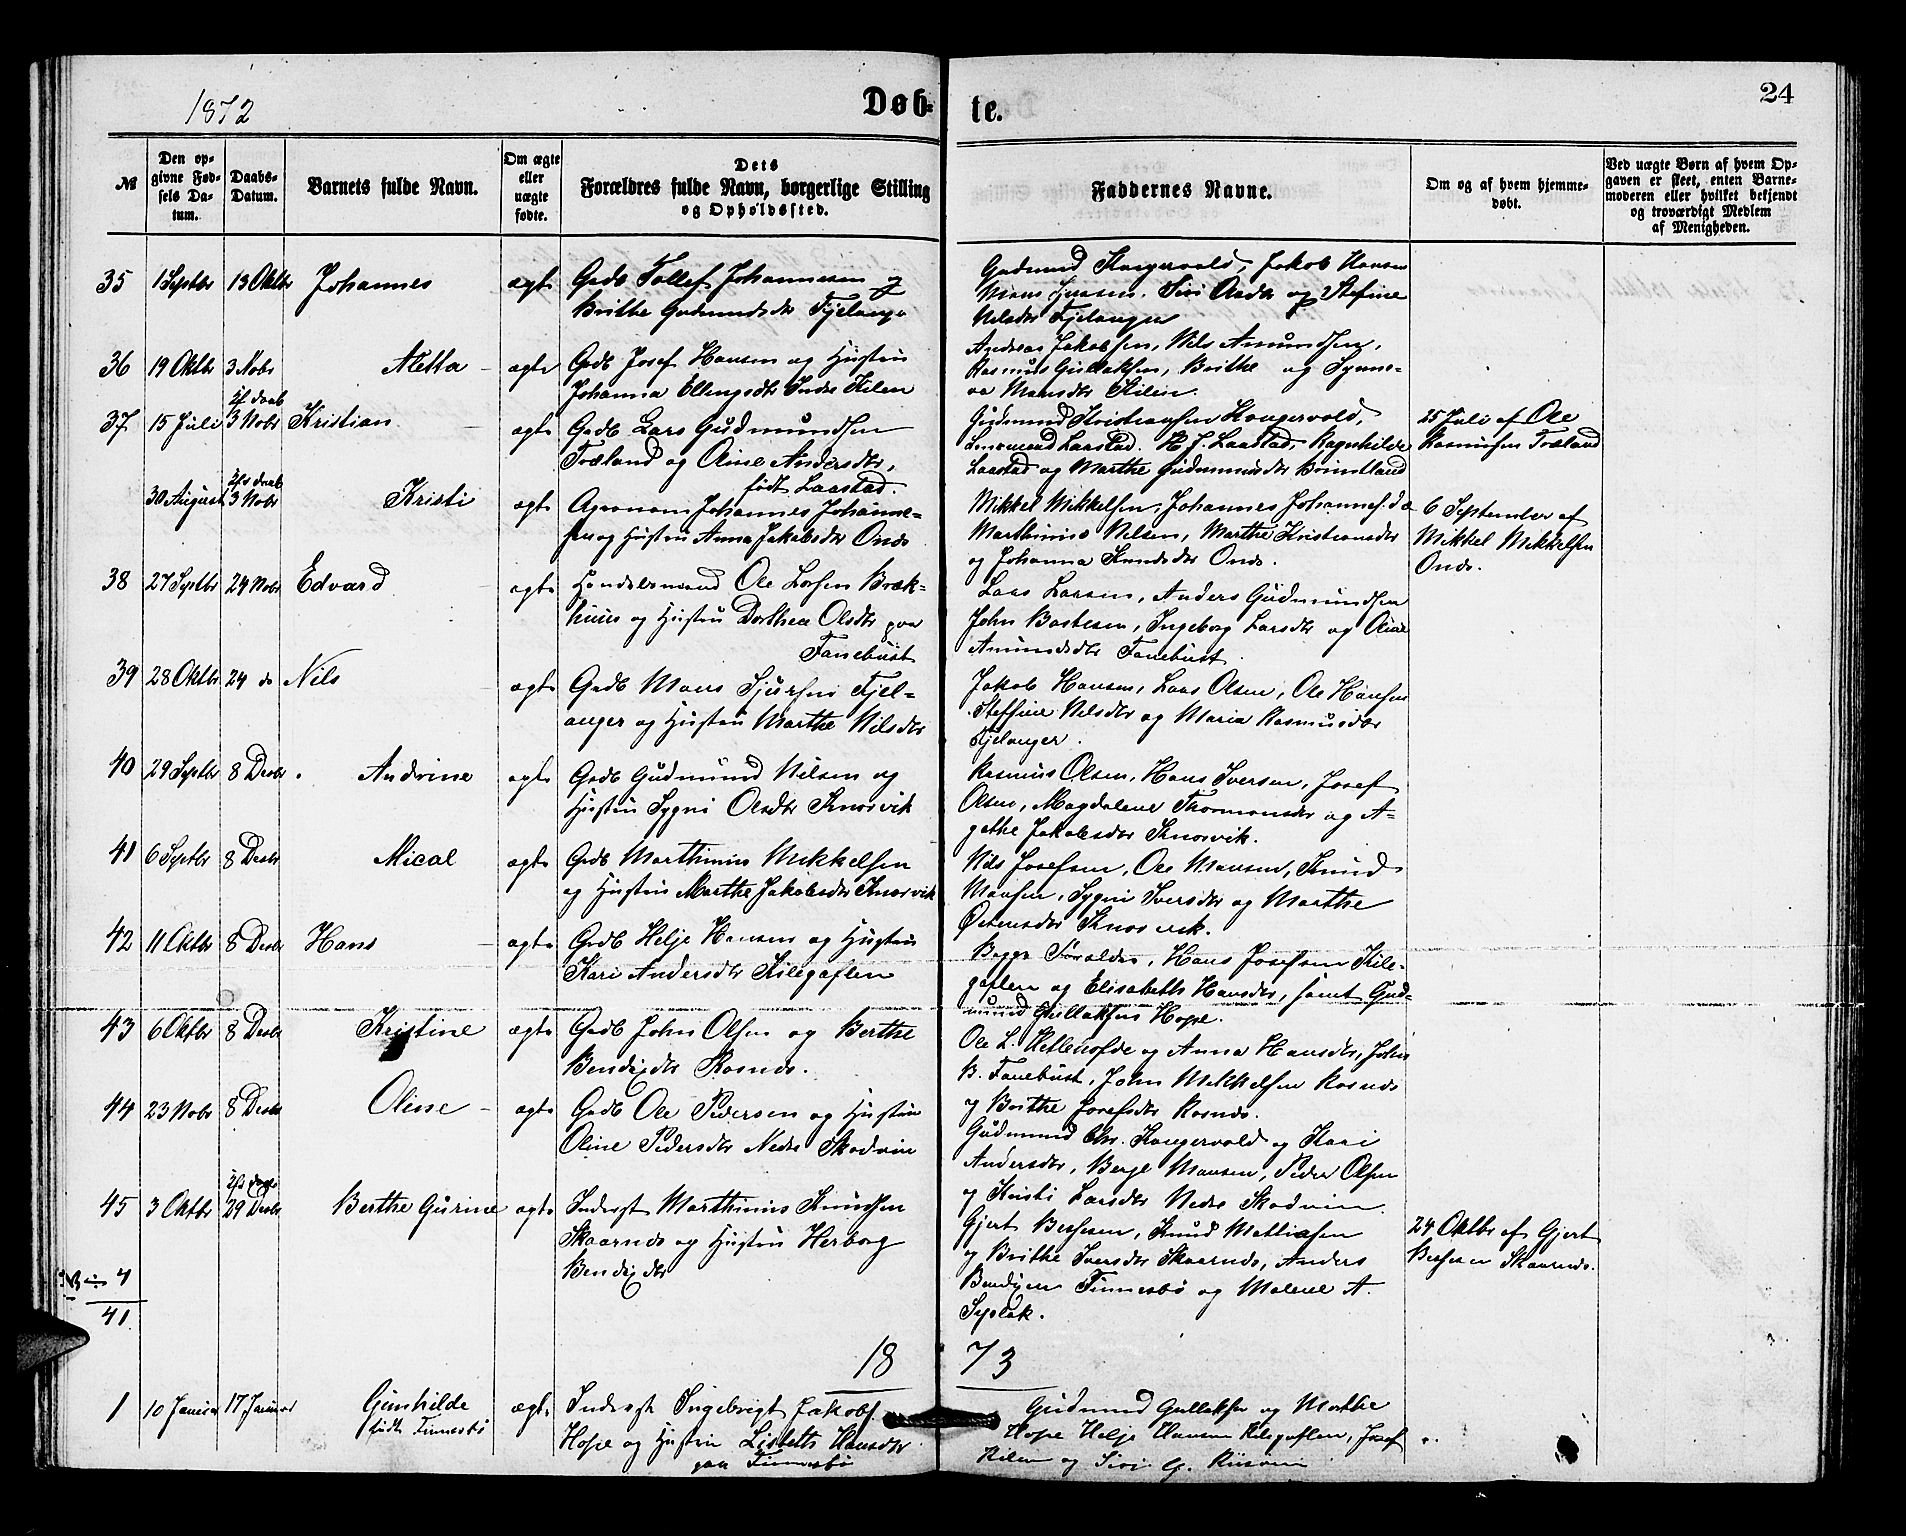 1872
Døb-
te.
24
№
Den op-
givne Fød-
sels Da-
tum.
Daabs-
Datum.
Barnets fulde Navn.
Om ægte
eller
uægte
fødte.
Dets
Forældres fulde Navn, borgerlige Stilling
og Opholdssted.
Faddernes Navne.
Om og af hvem hjemme-
døbt.
Ved uægte Børn af hvem Op-
gaven er skeet, enten Barne-
moderen eller hvilket bekjendt
og troværdigt Medlem
af Menigheden.
35 1 Septbr 13 Oktbr Johannes ægte Grdb Tollef Johannesen og
Brithe Gudmundsdr Fjelanger
Gudmund Kongervold, Jakob Hansen
Mons Hansen, Siri Andr og Stefine
Nilsdtr Fjelanger
36 19 Oktbr 3 Nobr Aletta ægte Grdb Josef Hansen og Hustru
Johanna Ellingsdtr Indre Kilen
Andreas Jakobsen, Nils Amundsen,
Rasmus Gullaksen, Brithe og Synne-
va Monsdtr Kilen.
37 15 Juli 3 Nobr Kristian ægte Grdb Lars Gudmundsen
Træland og Oline Andersdtr,
født Laastad.
Gudmund Kristiansen Kongervold,
Laastad. H. J. Laastad, Ragnhilde
Laastad og Marthe Gudmundsdtr Brimtland
25 Juli af Ole
Rasmusen Træland
30 August 3 Nobr Kristi ægte Agronom Johannes Johanne-
sen og Hustru Anna Jakobsdtr Onæs
Mikkel Mikkelsen, Johannes Johannes. d æ
Marthinus Nilsen, Marthe Kristiansdtr
og Johanna Knudsdtr Onæs.
6 September af
Mikkel Mikkelsen
Onæs.
38 27 Septbr 24 Nobr Edvard ægte Handelsmand Ole Larsen Bræk-
huus og Hustru Dorthea Olsdtr paa
Fanebust
Lars Larsen, Anders Gudmundsen
John Bastesen, Ingeborg Larsdtr og Oline
Amundsdtr Fanebust.
39 28 Oktbr 24 do Nils ægte Grdb Mons Sjursen Fjel-
anger og Hustru Marthe Nilsdtr
Jakob Hansen, Lars Olsen, Ole Hansen
Steffine Nilsdtr og Maria Rasmusdtr
Fjelanger.
40 29 Septbr 8 Desbr Andrine ægte Grdb Gudmund Nilsen og
Hustru Sygni Olsdtr Knarvik
Rasmus Olsen, Hans Iversen, Josef
Olsen, Magdalene Thormonsdtr og A-
gathe Jakobsdtr Knarvik.
41 6 Septbr 8 Desbr Mical ægte Grdb Marthinus Mikkelsen
og Hustru Marthe Jakobsdtr Knarvik
Nils Josefsen, Ole Monsen, Knud
Monsen, Sygni Iversdtr og Marthe
Østensdtr Knarvik.
42 11 Oktbr 8 Desbr Hans ægte Grdb Helje Hansen og Hustru
Kari Andersdtr Kilegaflen
Begge Forældre, Hans Josefsen Kile-
gaflen og Elisabeth Hansdtr, samt Gud-
mund Gullaksen Hope.
43 6 Oktbr 8 Desbr Kristine ægte Grdb John Olsen og Berthe
Bendixdtr Rosnæs.
Ole L. og Anna Hansdtr, John
B. Fanebust, John Mikkelsen Rosnæs
og Brithe Josefsdtr Rosnæs.
44 23 Nobr 8 Desbr Oline ægte Grdb Ole Pedersen og Hustru
Oline Pedersdtr Nedre Skodvin
Gudmund Chr. Kongervold og Kari
Andersdtr, Berge Monsen, Peder Olsen
og Kristi Larsdtr Nedre Skodvin.
45 3 Oktbr 29 Desbr Berthe Gurine ægte Inderst Marthinus Knudsen
Skaarnæs og Hustru Herborg
Bendixdtr
Gjert Bersesen, Knud Mathiasen
og Brithe Iversdtr Skaarnæs, Anders
Bendixen Finnesbø og Malene A.
24 Oktbr af Gjert
Bersesen Skaarnæs.
4
41
18 73
1 10 Januar 17 Januar Gunhilde
født Finnesbø
ægte Inderst Ingebrigt Jakobs.
Hope og Hustru Lisbeth Hansdtr
paa Finnesbø
Gudmund Gullaksen og Marthe
Hope Helje Hansen Kilegaflen, Josef
Kilen og Siri G.